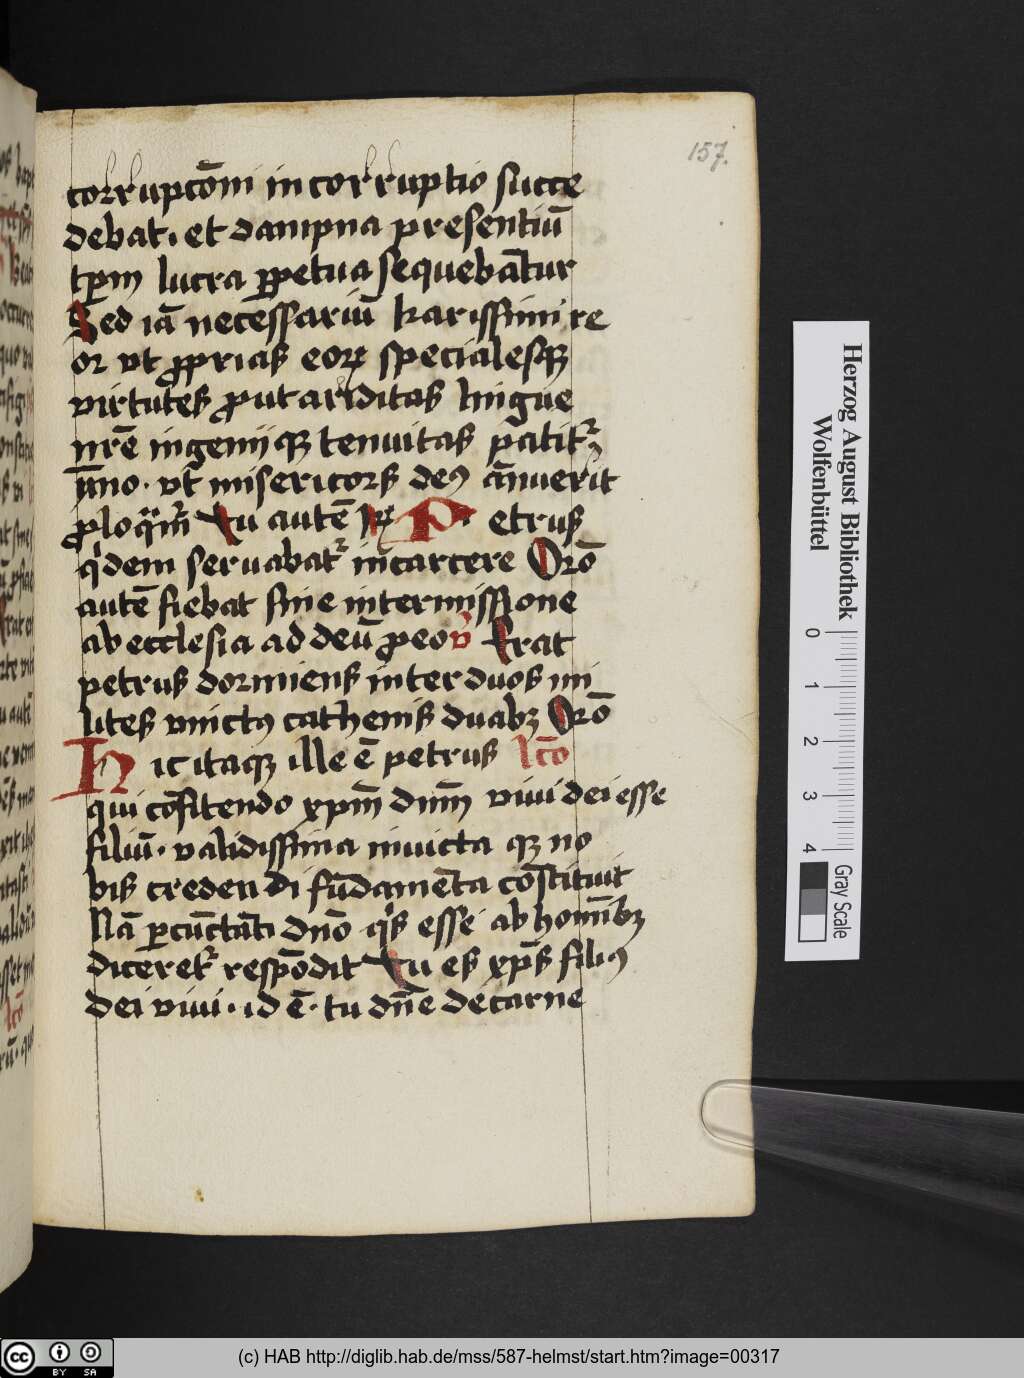 157.
corrupcōni in corruptio succe
debat. et dampna presentiū
tꝑm lucra ꝑpetua sequebātur
Sed iā necessariū karissimi re
or vt ꝓprias eoꝝ specialesqꝫ
virtutes ꝓut ariditas lingue
nrē ingenijqꝫ tenuitas patitᷣ
ymno. vt misericors deꝰ ānuerit
ꝓloqᷓmᷣ Tu autē R̥ P etrus
qͥdem seruabatᷣ in carcere Orō
autē fiebat sine intermissione
ab ecclesia ad deū ꝓ eo v̄ Erat
petrus dormiens inter duos mi
lites vinctꝰ cathenis duabꝫ Orō
H ic itaqꝫ ille ē petrus lcō
qui cōfitendo xp̄m dn̄m viui dei esse
filiū. validissima inuicta qꝫ no
bis credendi fūdamēta cōstituit
Nā ꝑcūctāti dn̄o qͥs esse ab homībꝫ
diceretᷣ respōdit Tu es xp̄s filiꝰ
dei viui. id ē. tu dn̄e de carne
Herzog August Bibliothek
Wolfenbüttel
0 1 2 3 4
Gray Scale
cc BY SA
(c) HAB http://diglib.hab.de/mss/587-helmst/start.htm?image=00317